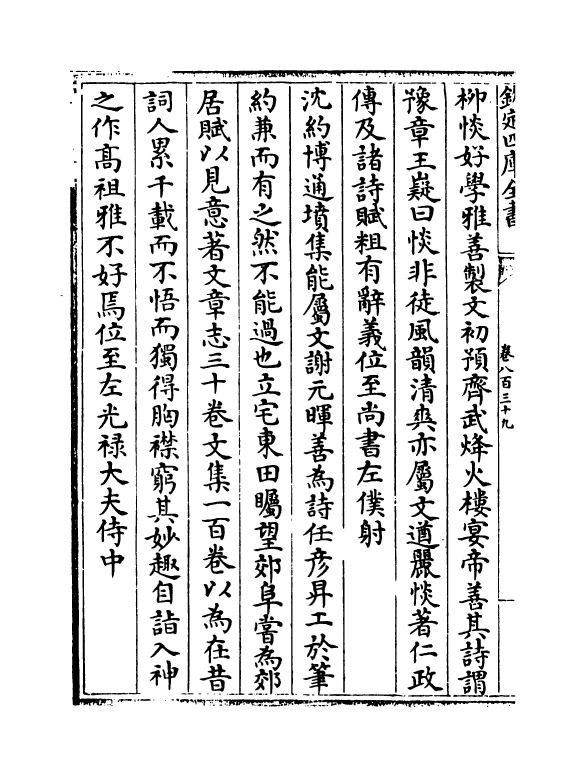 欽定四庫全書
卷八百三十九
柳惔好學雅善製文初預齊武烽火樓宴帝善其詩謂
豫章王嶷曰惔非徒風韻清爽亦屬文遒麗惔著仁政
傳及諸詩賦粗有辭義位至尚書左僕射
沈約博通墳集能屬文謝元暉善為詩任彦昇工於筆
約兼而有之然不能過也立宅東田矚望郊阜嘗為郊
居賦以見意著文章志三十卷文集一百卷以為在昔
詞人累千載而不悟而獨得胸襟窮其妙趣自詣入神
之作髙祖雅不好焉位至左光禄大夫侍中